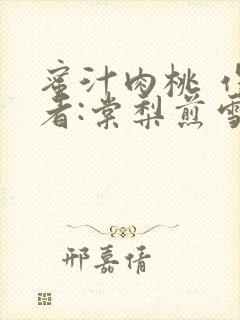 蜜汁肉桃 作
者:棠梨煎雪
邢嘉倩